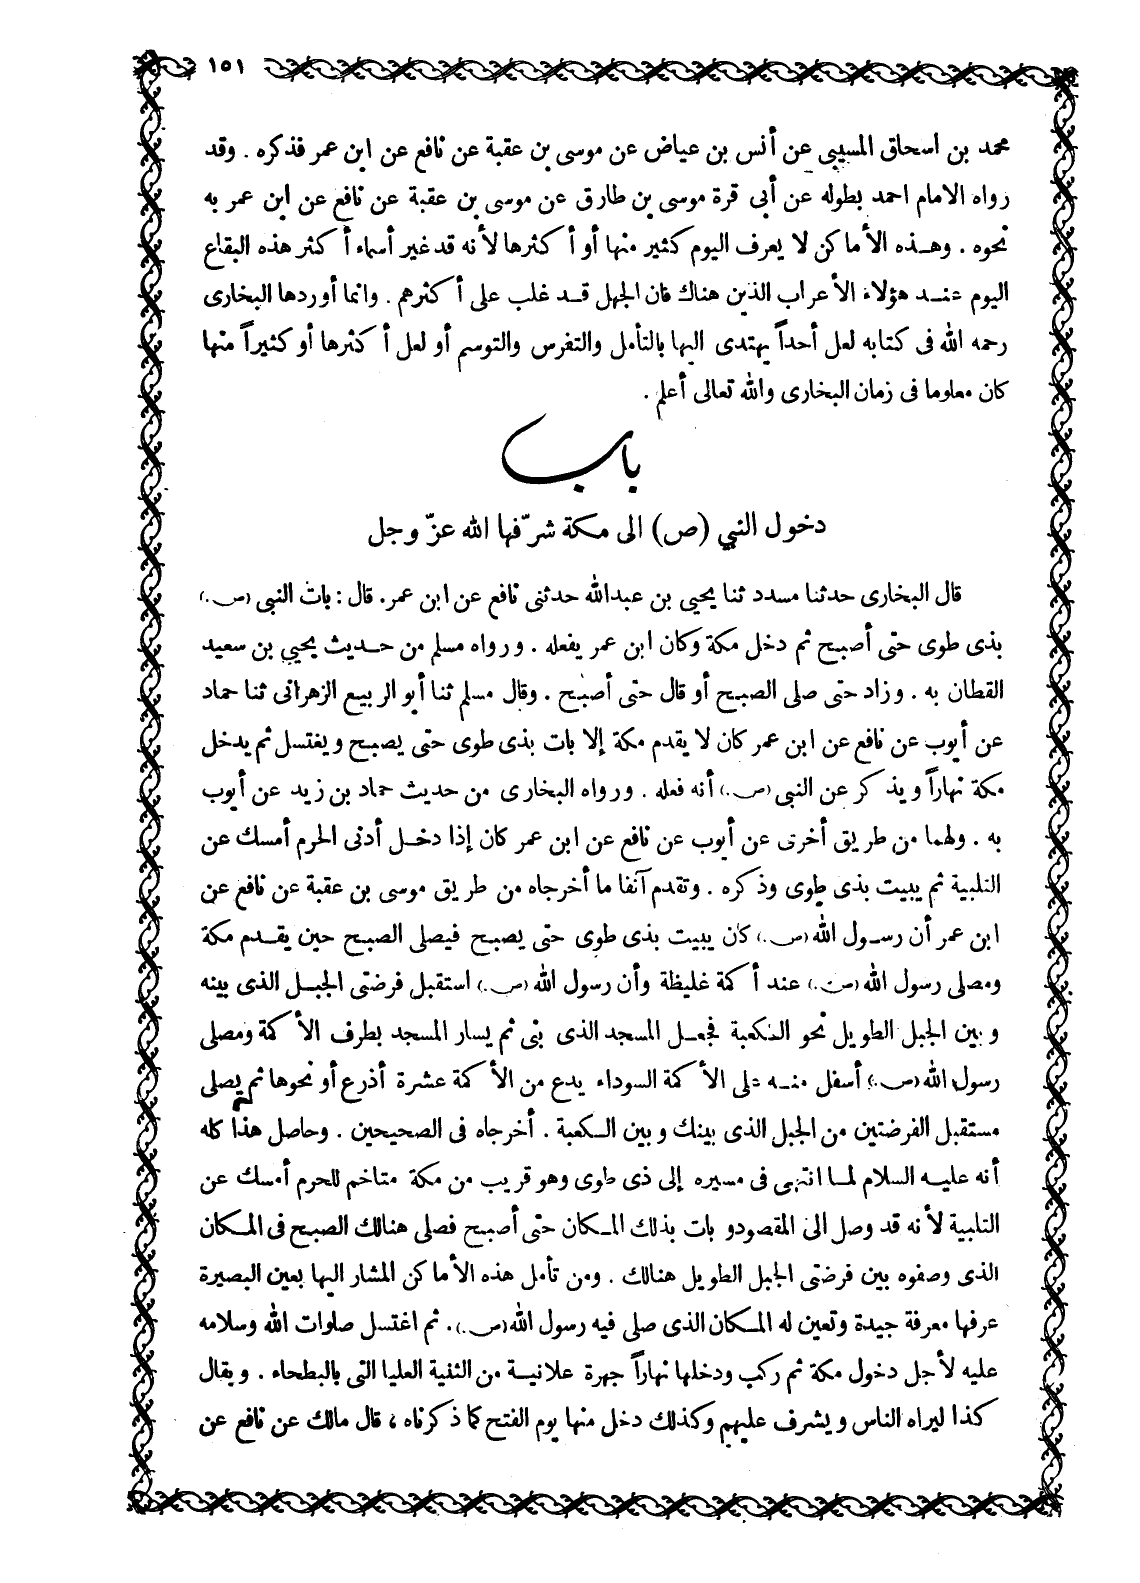 ١٥١
محمد بن اسحاق المسيبى عن أنس بن عياض عن موسى بن عقبة عن نافع عن ابن عمر فذكره . وقد
رواه الامام احمد بطوله عن أبى قرة موسى بن طارق عن موسى بن عقبة عن نافع عن ابن عمر به
نحوه . وهذه الأماكن لا يعرف اليوم كثير منها أو أكثرها لأنه قد غير أسماء أكثر هذه البقاع
اليوم عند هؤلاء الأعراب الذين هناك فان الجهل قد غلب على أكثرهم . وانما أوردها البخارى
رحمه الله فى كتابه لعل أحداً يهتدى اليها بالتأمل والتفرس والتوسم أو لعل أكثرها أو كثيراً منها
كان معلوما فى زمان البخارى والله تعالى أعلم .
باب
دخول النبي (ص) الى مكة شرّفها الله عزّ وجل
قال البخارى حدثنا مسدد ثنا يحيى بن عبدالله حدثنى نافع عن ابن عمر. قال : بات النبى (ص.)
بذى طوى حتى أصبح ثم دخل مكة وكان ابن عمر يفعله . ورواه مسلم من حديث يحيي بن سعيد
القطان به . وزاد حتى صلى الصبح أو قال حتى أصبح . وقال مسلم ثنا أبو الربيع الزهرانى ثنا حماد
عن أيوب عن نافع عن ابن عمر كان لا يقدم مكة إلا بات بذى طوى حتى يصبح ويغتسل ثم يدخل
مكة نهاراً ويذكر عن النبى (ص.) أنه فعله . ورواه البخارى من حديث حماد بن زيد عن أيوب
به . ولهما من طريق أخرى عن أيوب عن نافع عن ابن عمر كان إذا دخل أدنى الحرم أمسك عن
التلبية ثم يبيت بذى طوى وذكره . وتقدم آنفا ما أخرجاه من طريق موسى بن عقبة عن نافع عن
ابن عمر أن رسول الله (ص.) كان يبيت بذى طوى حتى يصبح فيصلى الصبح حين يقدم مكة
ومصلى رسول الله (ص.) عند أكمة غليظة وأن رسول الله (ص.) استقبل فرضتى الجبل الذى بينه
وبين الجبل الطويل نحو الكعبة فجعل المسجد الذى بنى ثم يسار المسجد بطرف الأكمة ومصلى
رسول الله (ص.) أسفل منه على الأكمة السوداء يدع من الأكمة عشرة أذرع أو نحوها ثم يصلى
مستقبل الفرضتين من الجبل الذى بينك وبين الكعبة . أخرجاه فى الصحيحين . وحاصل هذا كله
أنه عليه السلام لما انتهى فى مسيره إلى ذى طوى وهو قريب من مكة متاخم للحرم أمسك عن
التلبية لأنه قد وصل الى المقصودو بات بذلك المكان حتى أصبح فصلى هنالك الصبح فى المكان
الذى وصفوه بين فرضتى الجبل الطويل هنالك . ومن تأمل هذه الأماكن المشار اليها بعين البصيرة
عرفها معرفة جيدة وتعين له المكان الذى صلى فيه رسول الله (ص.). ثم اغتسل صلوات الله وسلامه
عليه لأجل دخول مكة ثم ركب ودخلها نهاراً جهرة علانية من الثنية العليا التى بالبطحاء . ويقال
كذا ليراه الناس ويشرف عليهم وكذلك دخل منها يوم الفتح كما ذكرناه ، قال مالك عن نافع عن